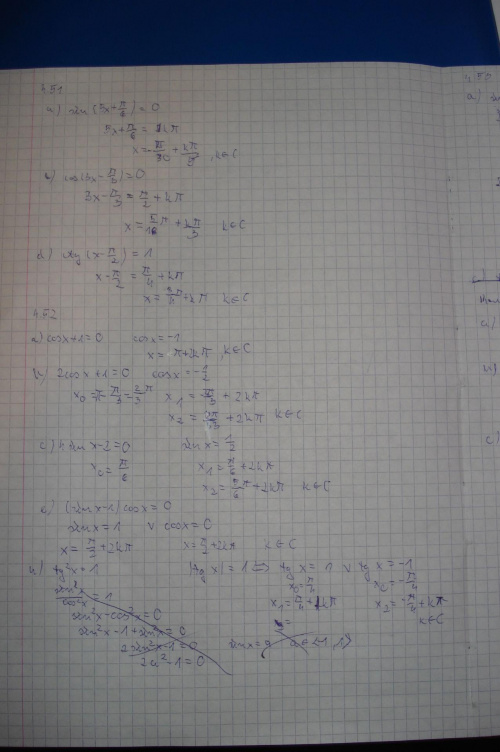 4.51
a) sin(5x+π/6)=0
5x+π/6 = kπ
x=-π/30 + kπ/5, k∈C
c) cos(3x-π/3)=0
3x-π/3 = π/2 + kπ
x= 5/18 π + kπ/3 k∈C
d) ctg(x-π/2)=1
x-π/2 = π/4 + kπ
x= 3/4 π + kπ k∈C
4.52
a) cosx+1=0 cosx=-1
x= π+2kπ, k∈C
b) 2cosx+1=0 cosx=-1/2
x₀=π-π/3=2/3 π x₁ = + 2kπ
x₂ = + 2kπ k∈C
c) 4sinx-2=0 sinx=1/2
x₀=π/6 x₁=π/6+2kπ
x₂=5/6 π+2kπ k∈C
e) (sinx-1)cosx=0
sinx=1 ∨ cosx=0
x=π/2+2kπ x=π/2+ k∈C
h) tg²x=1 |tgx|=1 ⇔ tgx=1 ∨ tgx=-1
sin²x/cos²x=1 x₀=π/4 x₀=-π/4
sin²x-cos²x=0 x₁=π/4+kπ x₂=-π/4+kπ
sin²x-1+sin²x=0 x= k∈C
2sin²x-1=0 sinx=a a∈<-1,1>
2a²-1=0
4.53
a)
a)
b)
c)